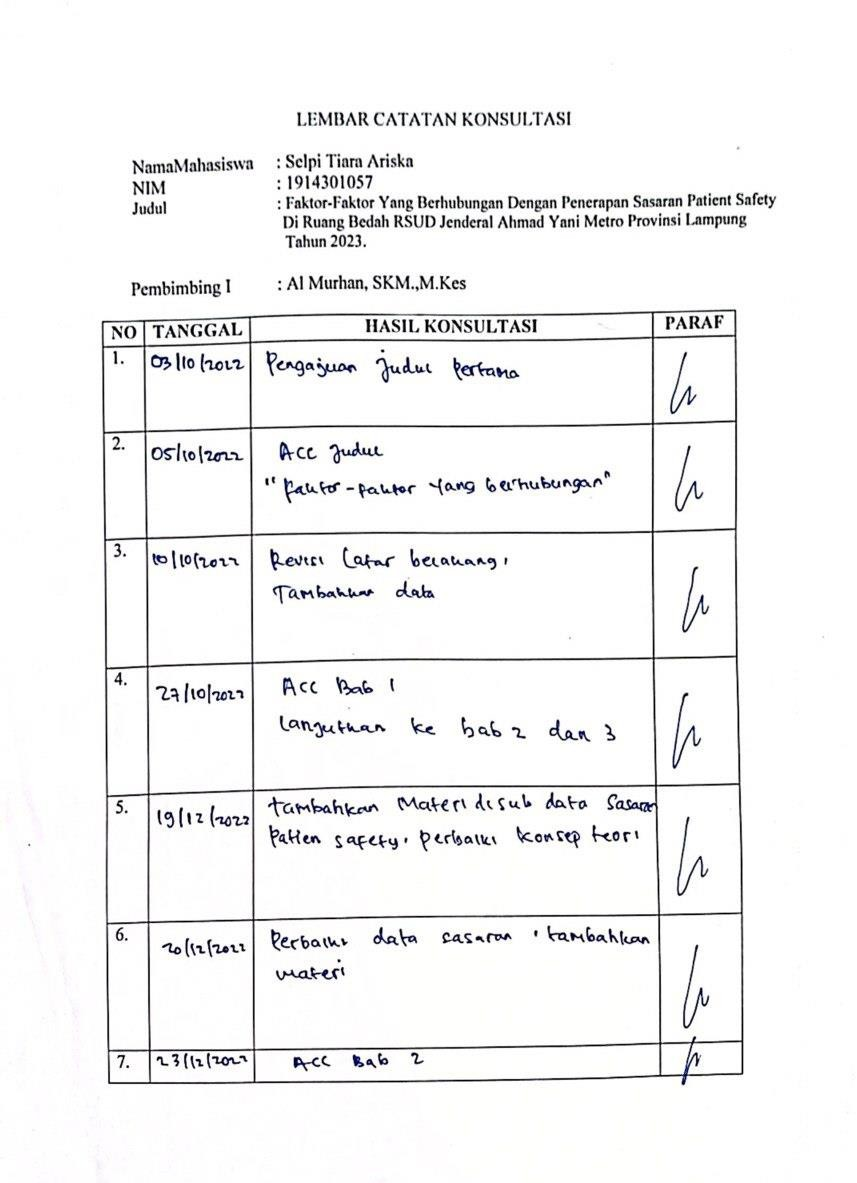 LEMBAR CATATAN KONSULTASI
NamaMahasiswa : Selpi Tiara Ariska
NIM : 1914301057
Judul : Faktor-Faktor Yang Berhubungan Dengan Penerapan Sasaran Patient Safety
Di Ruang Bedah RSUD Jenderal Ahmad Yani Metro Provinsi Lampung
Tahun 2023.
Pembimbing I : Al Murhan, SKM.,M.Kes
NO TANGGAL HASIL KONSULTASI PARAF
1. 03/10/2022 Pengajuan judul pertama
2. 05/10/2022 Acc Judul
"faktor-faktor yang berhubungan"
3. 10/10/2022 Revisi latar belakang,
Tambahkan data
4. 27/10/2022 Acc Bab 1
Lanjutkan ke bab 2 dan 3
5. 19/12/2022 tambahkan Materi disub data Sasaran
Patien safety, perbaiki konsep teori
6. 20/12/2022 Perbaiki data sasaran, tambahkan
materi
7. 23/12/2022 Acc Bab 2